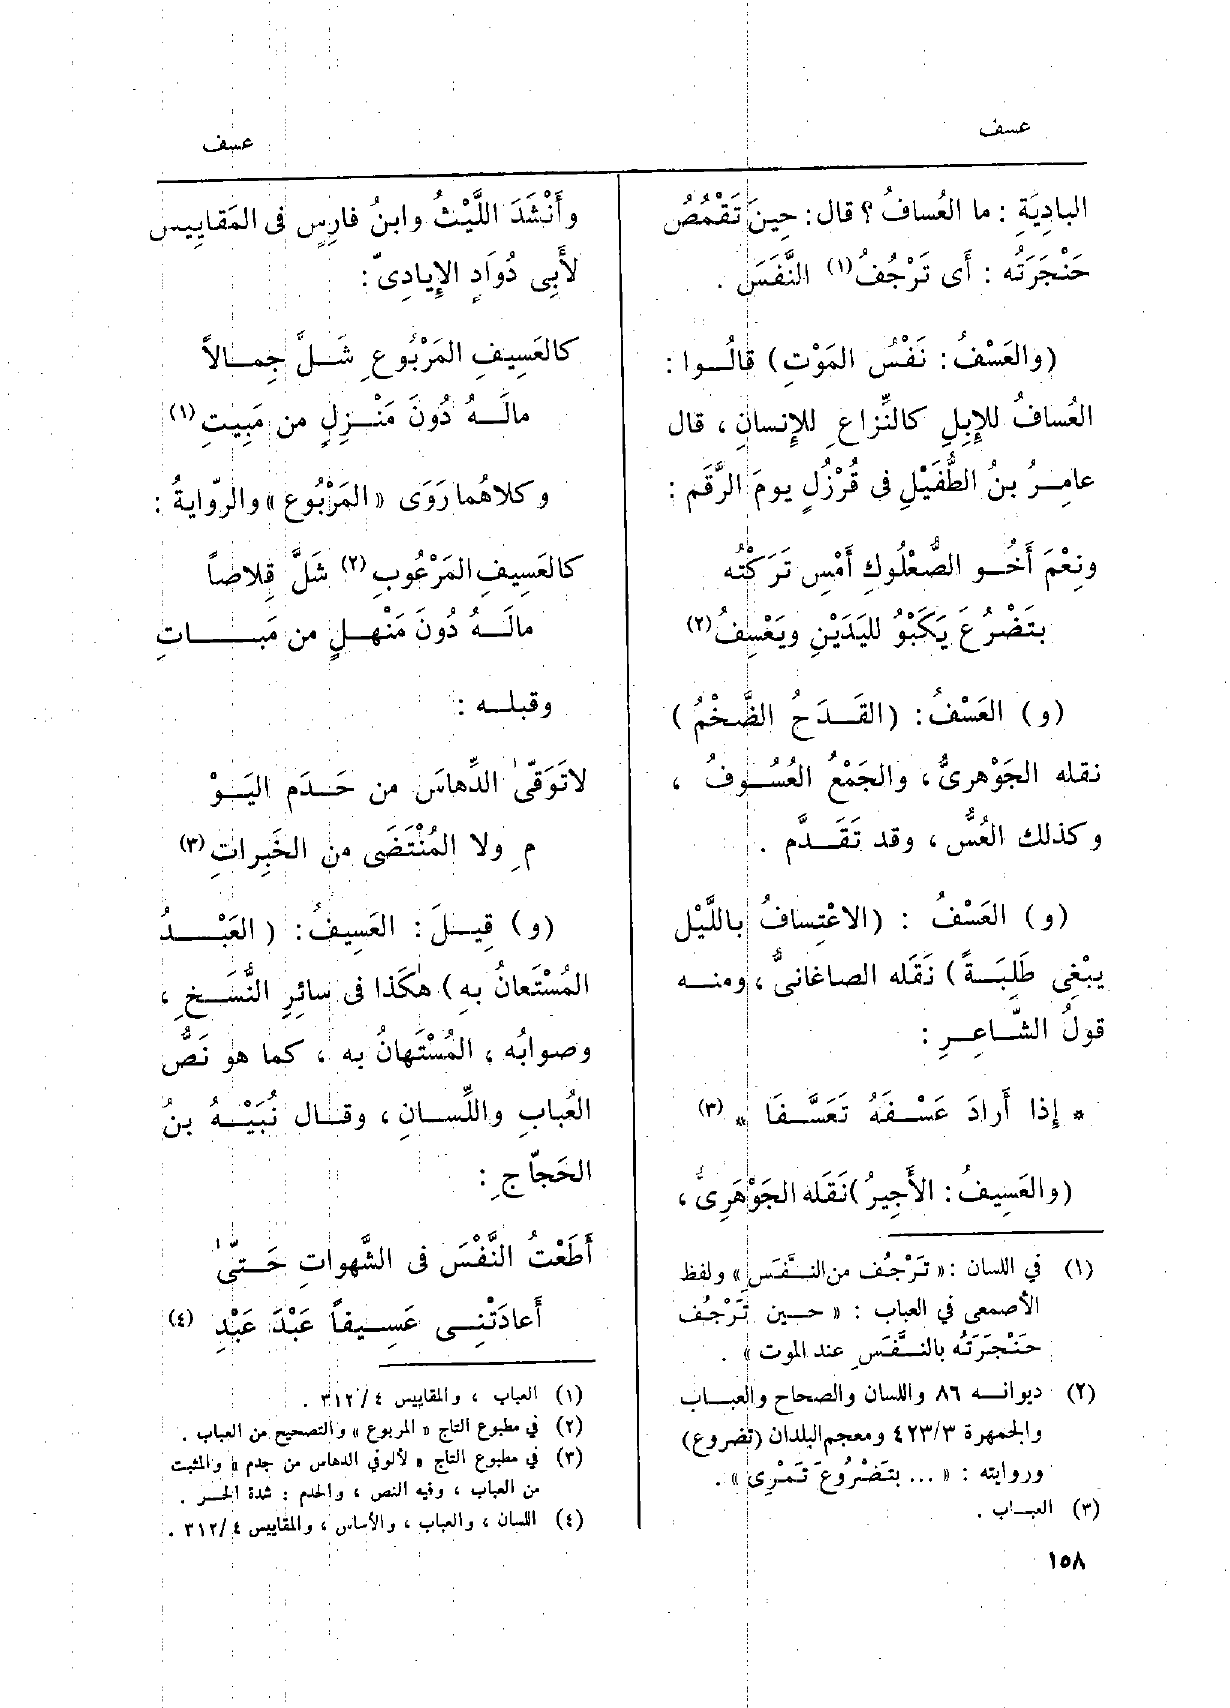 عسف
البادِيَةِ : ما العُسافُ ؟ قال : حِينَ تَقْمُصُ
حَنْجَرَتُه : أَى تَرْجُفُ (١) النَّفَسَ .
(والعَسْفُ : نَفْسُ المَوْتِ) قالُوا :
العُسافُ للإِبِلِ كالنِّزاعِ للإِنسانِ ، قال
عامِرُ بنُ الطُّفَيْلِ فى قُرْزُلٍ يومَ الرَّقَم :
ونِعْمَ أَخُو الصُّعْلُوكِ أَمْسِ تَرَكْتُه
بتَضْرُعَ يَكْبُو لليَدَيْنِ ويَعْسِفُ (٢)
(و) العَسْفُ : (القَدَحُ الضَّخْمُ)
نقله الجَوْهرىُّ ، والجَمْعُ العُسُوفُ ،
وكذلك العُسُّ ، وقد تَقَدَّم .
(و) العَسْفُ : (الاعْتِسافُ باللَّيْل
يبْغِى طَلِبَةً) نَقَله الصاغانىُّ ، ومنه
قولُ الشَّاعِرِ :
* إِذا أَرادَ عَسْفَهُ تَعَسَّفَا * (٣)
(والعَسِيفُ : الأَجِيرُ) نَقَله الجَوْهَرِىُّ ،
(١) في اللسان : « تَرْجُف من النَّفَسِ » ولفظ
الأصمعى في العباب : « حين تَرْجُف
حَنْجَرَتُه بالنَّفَسِ عند الموت » .
(٢) ديوانه ٨٦ واللسان والصحاح والعباب
والجمهرة ٤٢٣/٣ ومعجم البلدان (تضروع)
وروايته : « ... بتَضْرُوعَ تَمْرِى » .
(٣) العباب .
١٥٨
عسف
وأَنْشَدَ اللَّيْثُ وابنُ فارِسٍ فى المَقاييس
لأَبِى دُوَادٍ الإِيادِىّ :
كالعَسِيفِ المَرْبُوعِ شَلَّ جِمالاً
مالَهُ دُونَ مَنْزِلٍ من مَبِيتِ (١)
وكلاهُما رَوَى « المَرْبُوع » والرّوايةُ :
كالعَسِيفِ المَرْعُوبِ (٢) شَلَّ قِلاصاً
مالَهُ دُونَ مَنْهلٍ من مَبَاتِ
وقبله :
لاتَوَقّىٰ الدِّهاسَ من حَدَم اليَوْ
مِ ولا المُنْتَضَى من الخَبِراتِ (٣)
(و) قِيلَ : العَسِيفُ : (العَبْدُ
المُسْتَعانُ بهِ) هٰكَذا فى سائِرِ النُّسَخِ ،
وصوابُه ، المُسْتَهانُ به ، كما هو نَصُّ
العُبابِ واللِّسانِ ، وقال نُبَيْهُ بنُ
الحَجّاجِ :
أَطَعْتُ النَّفْسَ فى الشَّهواتِ حَتّىٰ
أَعادَتْنِى عَسِيفاً عَبْدَ عَبْدِ (٤)
(١) العباب ، والمقاييس ٣١٢/٤ .
(٢) في مطبوع التاج « المربوع » والتصحيح من العباب .
(٣) في مطبوع التاج « لألوفي الدهاس من جدم » والمثبت
من العباب ، وفيه النص ، والحدم : شدة الحر .
(٤) اللسان ، والعباب ، والأساس ، والمقاييس ٣١٢/٤ .